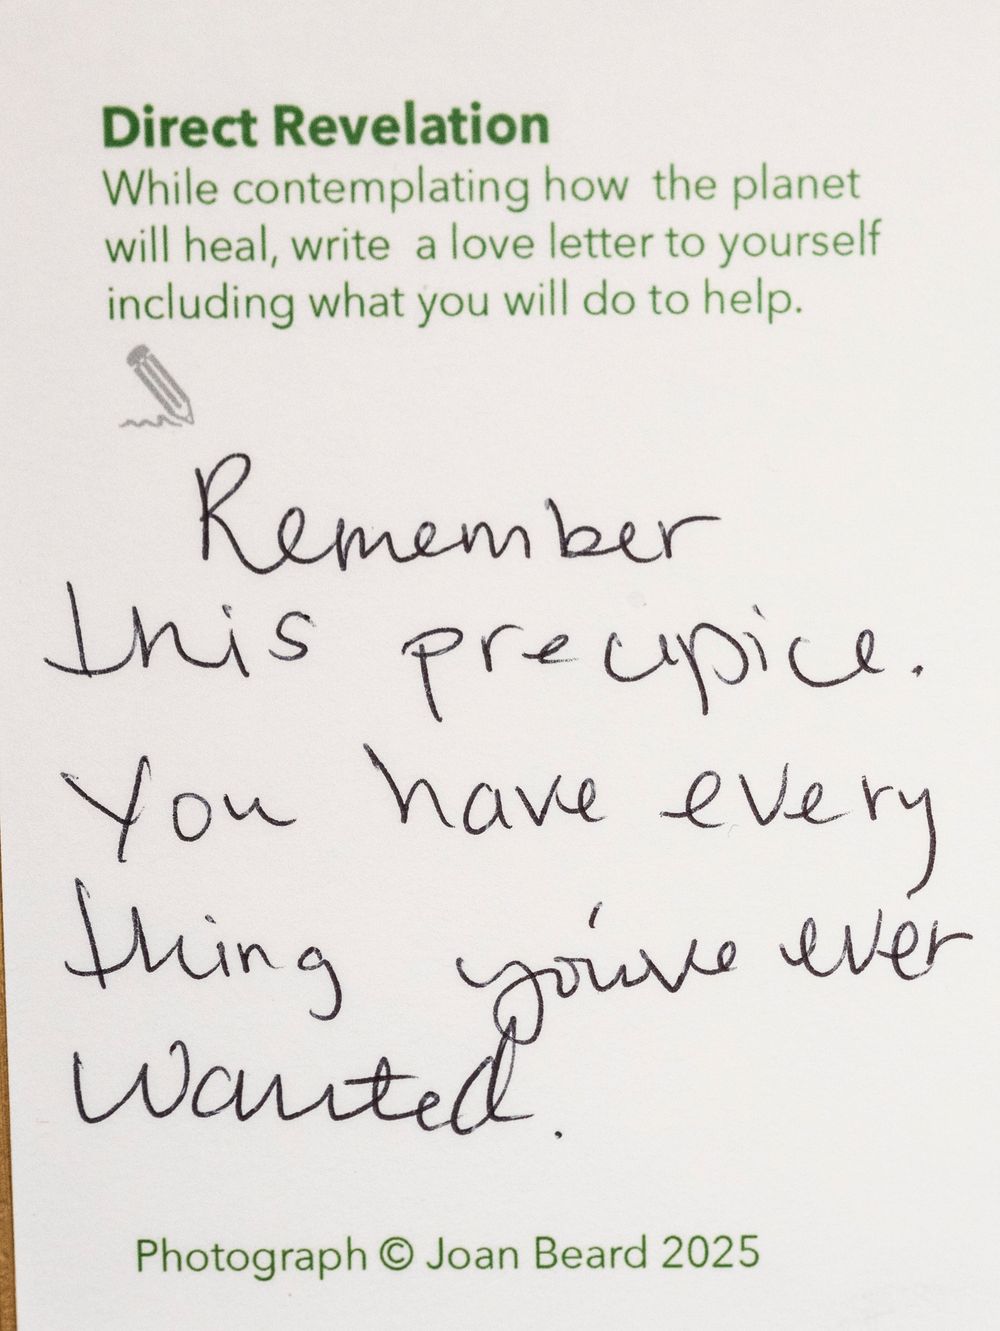 Direct Revelation
While contemplating how the planet
will heal, write a love letter to yourself
including what you will do to help.
Remember
this precipice.
You have every
thing you've ever
wanted.
Photograph © Joan Beard 2025